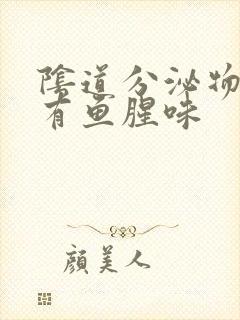 陰道分泌物
有鱼腥味
顔美人